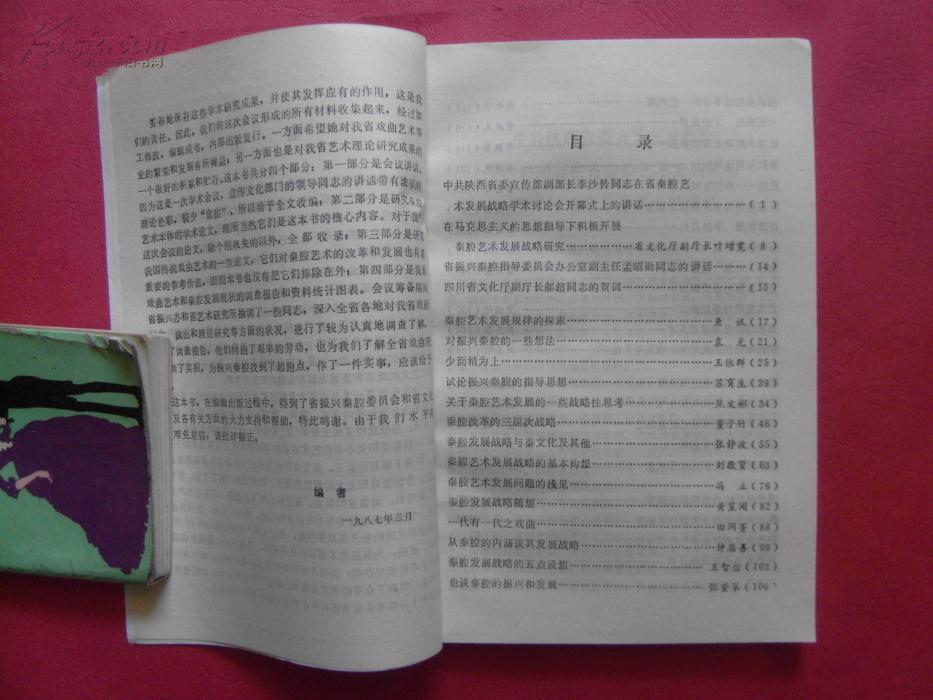 Kongfz.com
妥善地保存这些学术研究成果，并使其发挥应有的作用，这是我
们的责任。因此，我们将这次会议形成的所有材料收集起来，经过加
工修改，编辑成书，内部出版发行。一方面希望她对我省戏曲艺术事
业的繁荣和发展有所裨益；另一方面也是对我省艺术理论研究成果的
一个很好的积累和贮存。这本书共分四个部分：第一部分是会议讲话，
因为这是一次学术会议，宣传文化部门的领导同志的讲话带有浓厚的
理论色彩，较少“官腔”，所以给予全文收编；第二部分是研究
艺术本体的学术论文，理所当然它们是这本书的核心内容。对于
这次会议的论文，除个别
以外，全部收录；第三部分是研究
我国传统戏曲艺术的一些论文，它们对秦腔艺术的改革和发展也有着
重要的参考价值，因而本书也没有把它们排除在外；第四部分是我
戏曲艺术和秦腔发展现状的调查报告和资料统计图表。会议筹备期间
省振兴办和省艺术研究所抽调了一些同志，深入全省各地对我省戏曲
演出和理论研究等方面的状况，进行了较为认真地调查了解，
了调查报告，他们付出了艰辛的劳动，也为我们了解全省戏曲现
供了实据，为振兴秦腔找到了起跑点，作了一件实事，应该给予
这本书，在编辑出版过程中，得到了省振兴秦腔委员会和省文化
及各有关方面的大力支持和帮助，特此鸣谢。由于我们水平
难免差错，请批评指正。
编者
一九八七年三月
目 录
中共陕西省委宣传部副部长李沙铃同志在省秦腔艺
术发展战略学术讨论会开幕式上的讲话……………（1）
在马克思主义的思想指导下积极开展
秦腔艺术发展战略研究………省文化厅副厅长叶增宽（8）
省振兴秦腔指导委员会办公室副主任孟昭勋同志的讲话……（14）
四川省文化厅副厅长郝超同志的贺词……………………（15）
秦腔艺术发展规律的探索……………………鱼 讯（17）
对振兴秦腔的一些想法………………………袁 光（21）
少而精为上……………………………………王依群（25）
试论振兴秦腔的指导思想……………………苏育生（29）
关于秦腔艺术发展的一些战略性思考………焦文彬（34）
秦腔改革的三层次战略………………………董子竹（46）
秦腔发展战略与秦文化及其他………………张静波（55）
秦腔艺术发展战略的基本构想………………刘敬贤（63）
秦腔艺术发展问题的浅见……………………冯 立（76）
秦腔发展战略随想……………………………黄笙闻（82）
一代有一代之戏曲……………………………田涧菁（88）
从秦腔的内涵谈其发展战略…………………仲居善（99）
秦腔发展战略的五点设想……………………王智信（102）
也谈秦腔的振兴和发展………………………张登第（106）